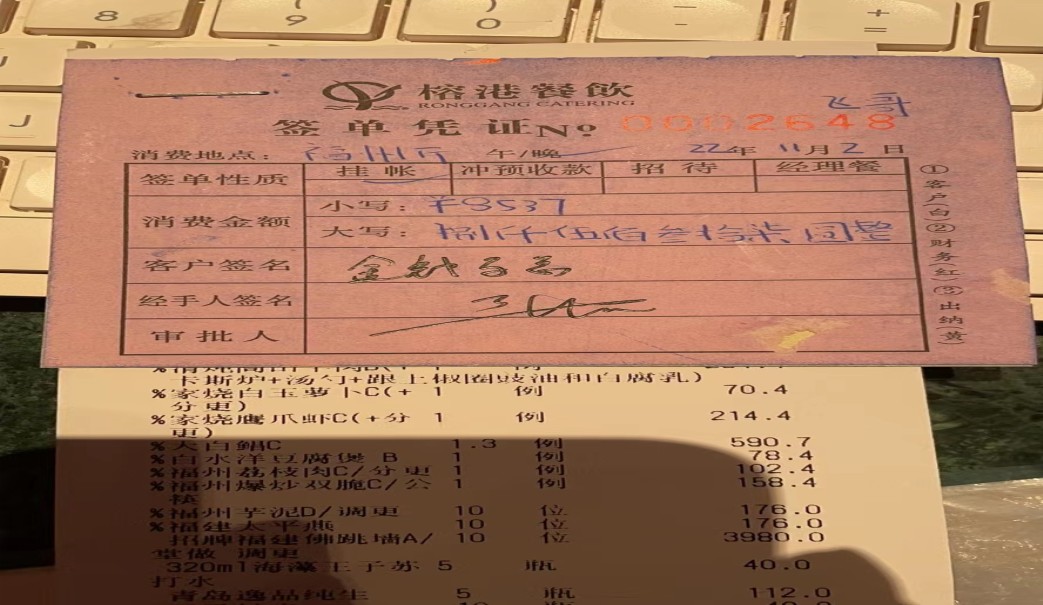 8 9 0 - =
J
榕港餐飲
RONGGANG CATERING
飞哥
签单凭证 Nº 0002648
消费地点: 福州厅 午/晚 22年11月2日
签单性质 挂帐 冲预收款 招待 经理餐
消费金额 小写: ¥8537
大写: 捌仟伍佰叁拾柒圆整
客户签名
经手人签名
审批人
①客户(白)②财务(红)③出纳(黄)
卡斯炉+汤勺+跟上椒圈豉油和白腐乳)
%家烧白玉萝卜C(+ 1 例 70.4
分更)
%家烧鹰爪虾C(+分 1 例 214.4
更)
%大白鲳C 1.3 例 590.7
%白水洋豆腐煲 B 1 例 78.4
%福州荔枝肉C/分更 1 例 102.4
%福州爆炒双脆C/公 1 例 158.4
筷
%福州芋泥D/调更 10 位 176.0
%福建太平燕 10 位 176.0
招牌福建佛跳墙A/ 10 位 3980.0
堂做 调更
320ml海藻王子苏 5 瓶 40.0
打水
青岛逸品纯生 5 瓶 112.0